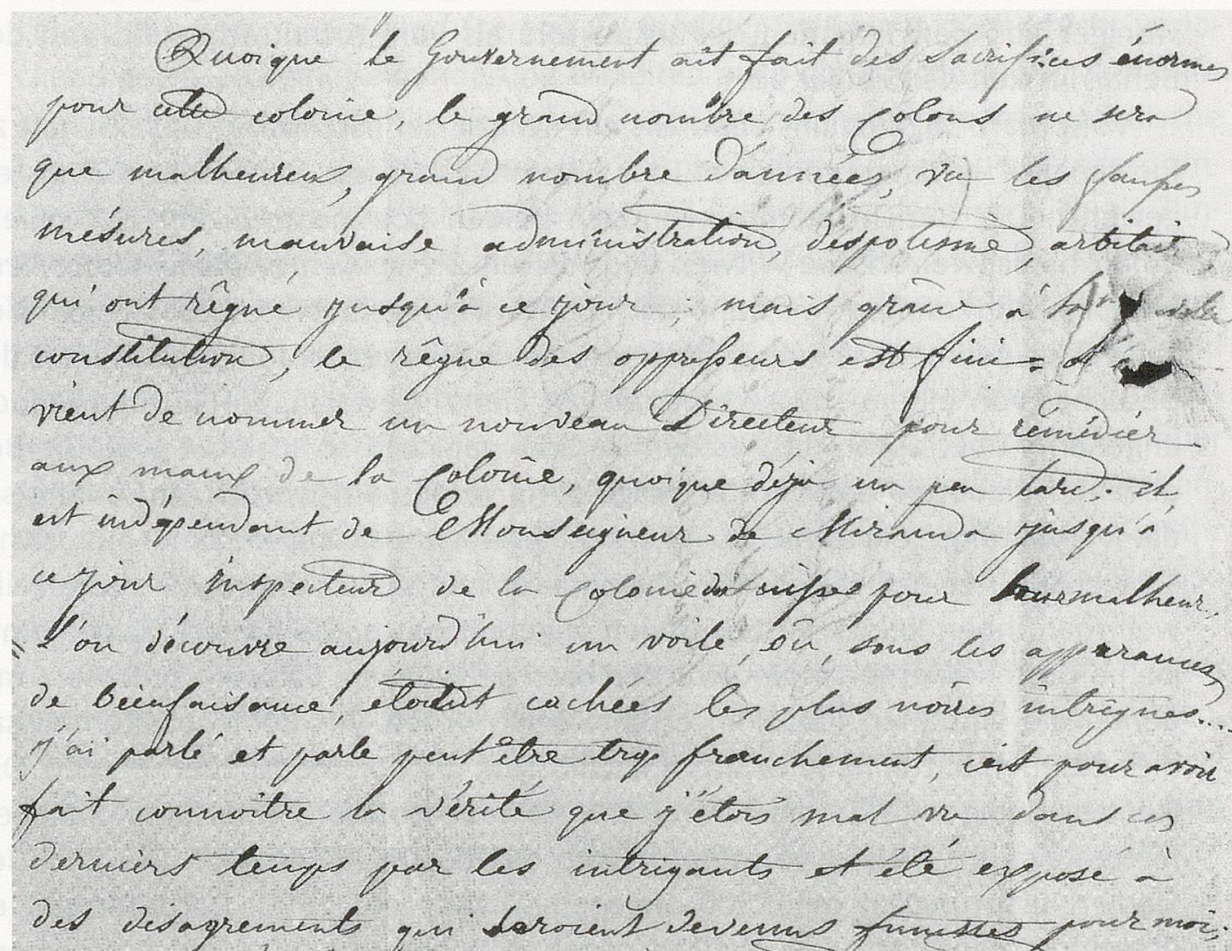 Quoique le Gouvernement ait fait des sacrifices énormes
pour cette colonie, le grand nombre des Colons ne sera
que malheureux, grand nombre d'années, vu les fausses
mésures, mauvaise administration, despotisme, arbitraire
qui ont rêgné jusqu'à ce jour; mais grâce à la
constitution, le rêgne des oppresseurs est fini =
vient de nommer un nouveau Directeur pour remédier
aux maux de la Colonie, quoique déja un peu tard; il
est indépendant de Monseigneur de Miranda jusqu'à
ce jour inspecteur de la Colonie suisse pour leur malheur.
L'on découvre aujourd'hui un voile, où, sous les apparances
de bienfaisance, étoient cachées les plus noires intrigues....
j'ai parlé et parle peut être trop franchement, c'est pour avoir
fait connoitre la vérité que j'étois mal vu dans ces
derniers temps par les intrigants et été exposé à
des désagrements qui seroient devenus funestes pour moi,